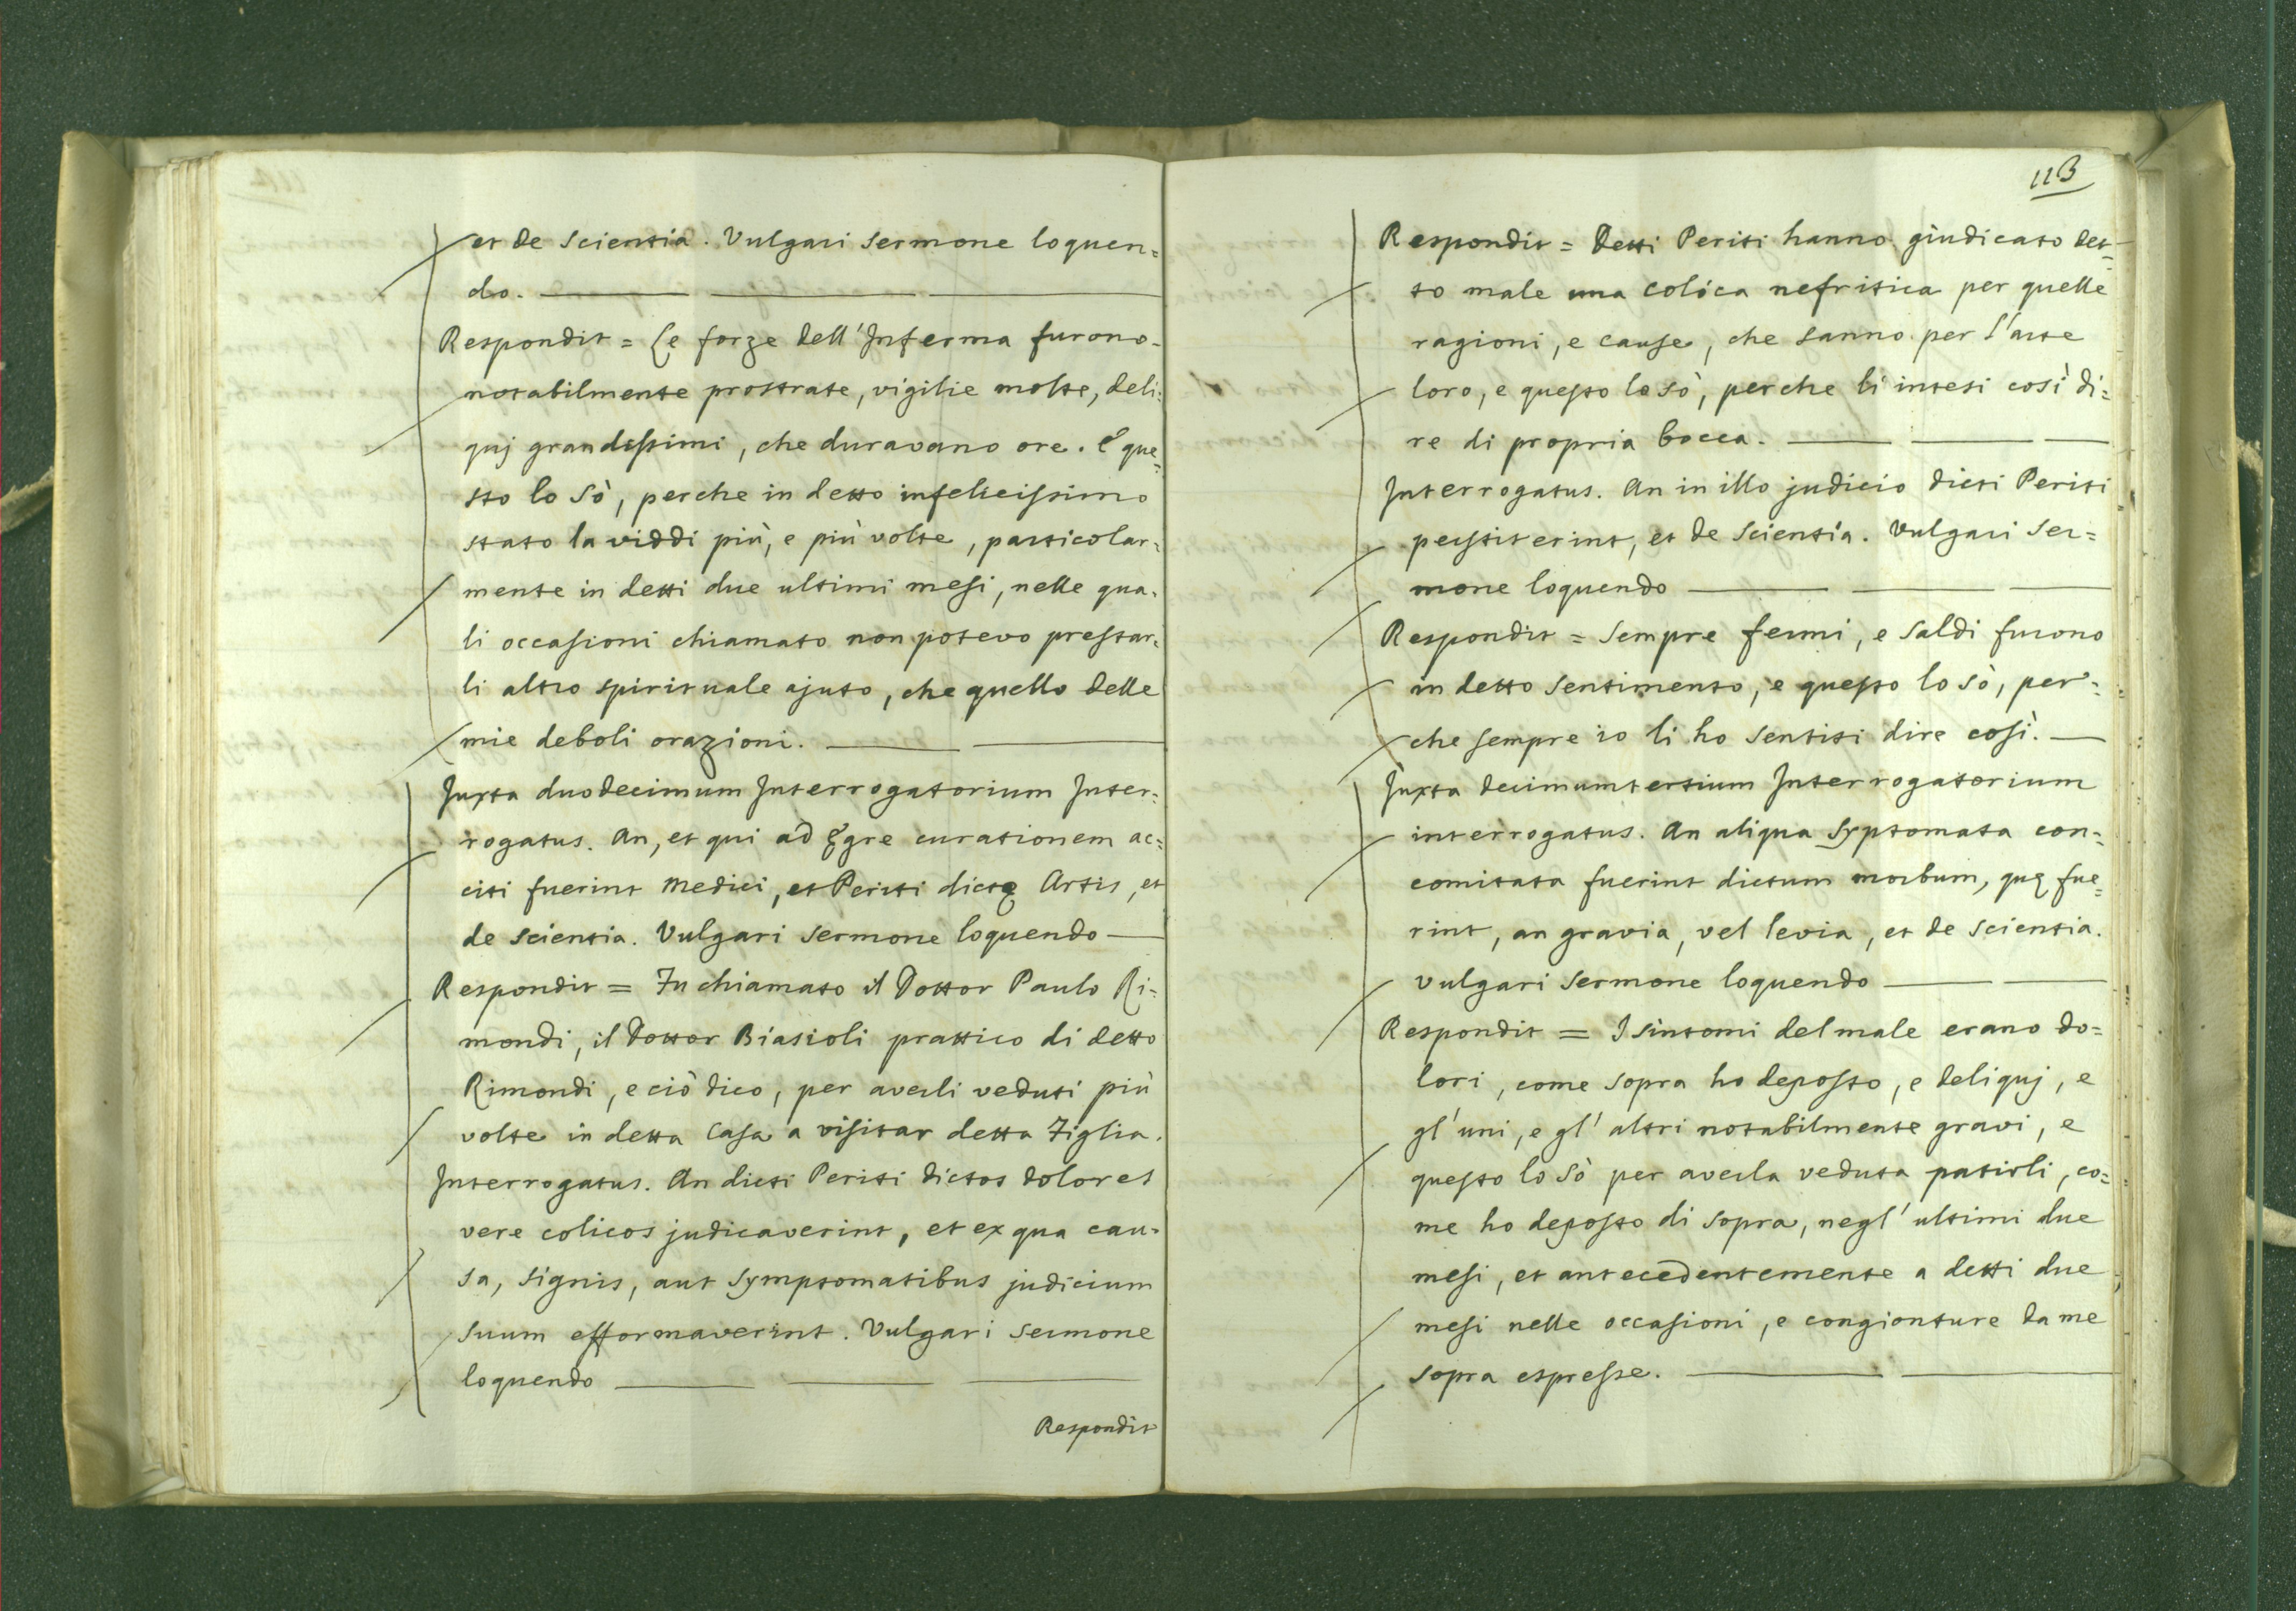 et de Scientia. Vulgari Sermone loquen=
do.
Respondit = Le forze dell'Inferma furono
notabilmente prostrate, vigilie molte, deli=
quj grandissimi, che duravano ore. E que=
sto lo Sò, perche in detto infelicissimo
stato la viddi più, e più volte, particolar=
mente in detti due ultimi mesi, nelle qua=
li occasioni chiamato non potevo prestar=
li altro spirituale ajuto, che quello delle
mie deboli orazioni.
Juxta duodecimum Interrogatorium Inter=
rogatus. An, et qui ad Ęgre curationem ac=
citi fuerint Medici, et Periti dictę Artis, et
de Scientia. Vulgari Sermone loquendo
Respondit = Fu chiamato il Dottor Paulo Ri=
mondi, il Dottor Biasioli prattico di detto
Rimondi, e ciò dico, per averli veduti più
volte in detta Casa a visitar detta Figlia.
Interrogatus. An dicti Periti dictos dolores
vere colicos judicaverint, et ex qua cau=
sa, signis, aut Symptomatibus judicium
suum efformaverint. Vulgari Sermone
loquendo
Respondit
113
Respondit = Detti Periti hanno giudicato det=
to male una colica nefritica per quelle
ragioni, e cause, che sanno per l'arte
loro, e questo lo sò, perche li intesi così di=
re di propria bocca.
Interrogatus. An in illo judicio dicti Periti
perstiterint, et de Scientia. Vulgari Ser=
mone loquendo
Respondit = Sempre fermi, e Saldi furono
in detto Sentimento, e questo lo sò, per=
che sempre io li ho Sentiti dire così.
Juxta decimumtertium Interrogatorium
interrogatus. An aliqua Syptomata con=
comitata fuerint dictum morbum, quę fue=
rint, an gravia, vel levia, et de Scientia.
Vulgari Sermone loquendo
Respondit = I Sintomi del male erano do=
lori, come Sopra ho deposto, e deliquj, e
gl'uni, e gl'altri notabilmente gravi, e
questo lo Sò per averla veduta patirli, co=
me ho deposto di Sopra, negl'ultimi due
mesi, et antecedentemente a detti due
mesi nelle occasioni, e congionture da me
sopra espresse.